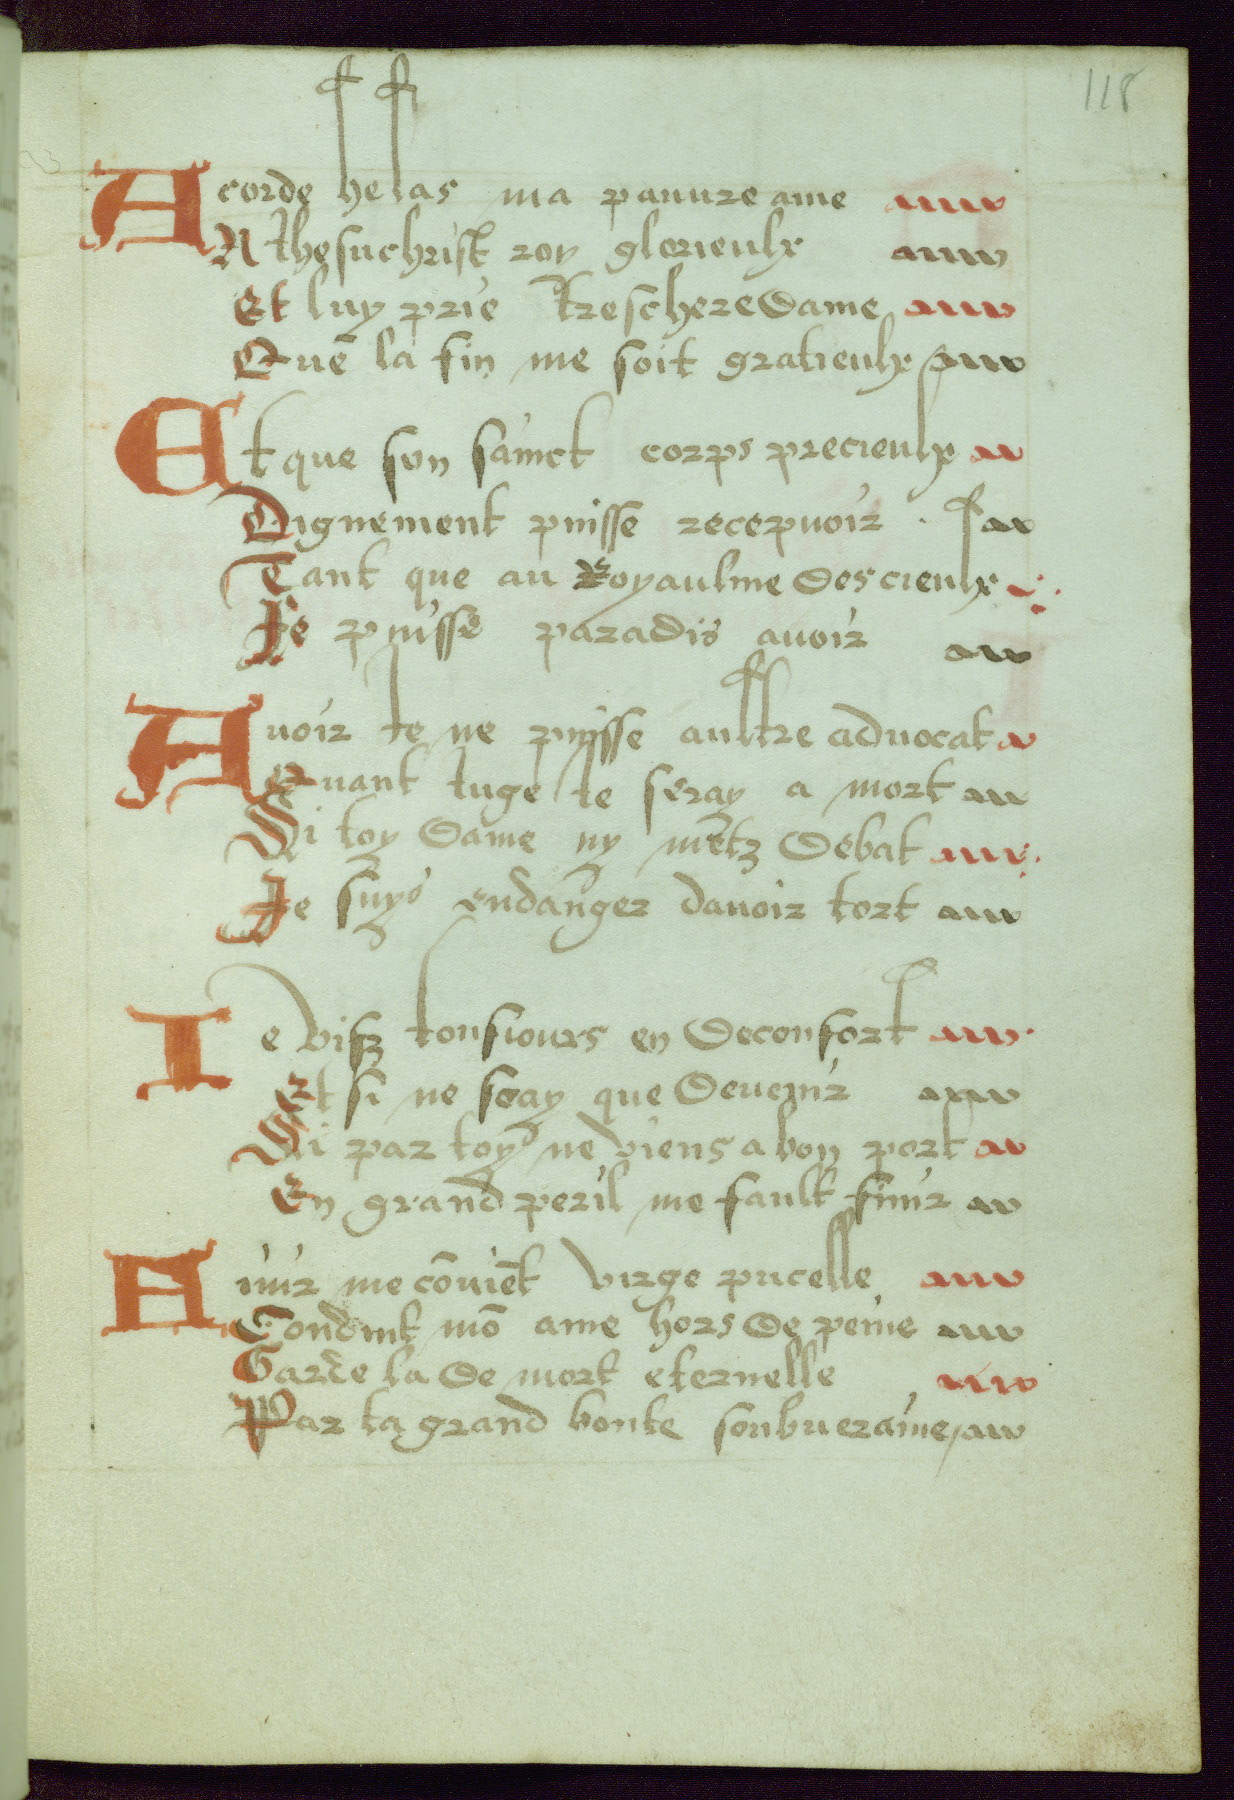 118
Acorde helas ma pauure ame
A Ihesuchrist roy glorieulx
Et luy prie treschere dame
Quē la fin me soit gratieulx
Et que son sainct corps precieulx
Dignement puisse recepuoir
Tant que au Royaulme des cieulx
Je puisse paradis auoir
Auoir Ie ne puisse aultre aduocat
Quant Iuge Ie seray a mort
Si toy dame ny metz debat
Je suys endanger dauoir tort
Ie vifz tousiours en deconfort
Et si ne scay que deuenir
Si par toy ne viens a bon port
En grand peril me fault finir
Finir me cōuiēt virge pucelle
Conduit mō ame hors de peine
Garde la de mort eternelle
Par ta grand bonte soubueraine